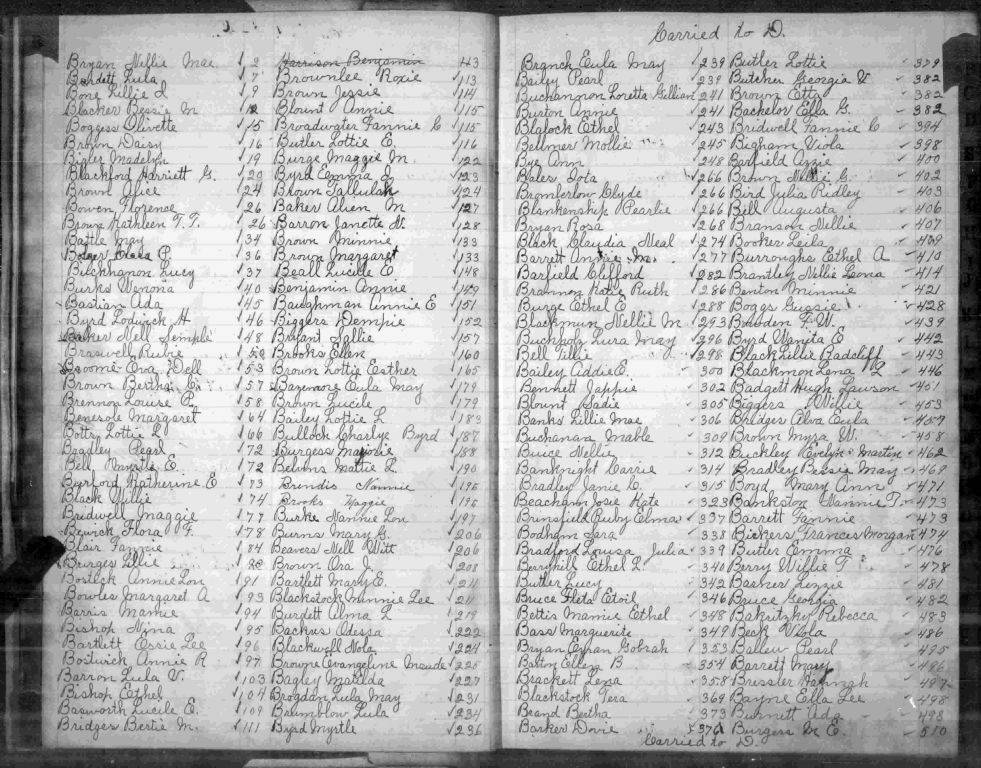 Carried to D.
Bryan Nellie Mae 2
Bardett Lula 7
Bone Lillie d 9
Blacker Bessie M 12
Boggess Olivette 15
Brown Daisy 16
Bigley Madelyn 19
Blackford Harriett G. 20
Brown Alice 24
Bowen Florence 26
Kathleen T. T. 26
Battle May 34
P. 36
Buckhanon Lucy 37
Burks Wenona 40
Bastian Ada 45
Byrd Lodwick H 46
Baker Nell Semple 48
Braswell Rubie 50
Broome Eva Dell 53
Brown Bertha E. 57
Brennon Louise P. 58
Benerole Margaret 64
Lottie L 66
Bradley Pearl 72
Bell Myrtle E. 72
Burford Katherine E 73
Black Willie 74
Bridwell Maggie 77
Bewick Flora F. 78
Blair Fannie 84
Burges Lillie
Bostick Annie Lou 91
Bowles Margaret A 93
Barris Mamie 94
Bishop Nina 95
Bartlett Essie Lee 96
Bostwick Annie R 97
Barron Lula V. 103
Bishop Ethel 104
Basworth Lucile E. 109
Bridges Bertie M. 111
Harrison Benjamin 43
Brownlee Roxie 113
Brown Jessie 114
Blount Annie 115
Broadwater Fannie C 115
Butler Lottie E. 116
Burge Maggie M. 122
Byrd Emma E. 123
Brown Tallulah 124
Baker Alien M 127
Barron Janette H. 128
Brown Minnie 133
Brown Margaret 133
Beall Lucille E 148
Benjamin Annie 149
Baughman Annie E 151
Biggers Dempie 152
Bryant Sallie 157
Brooks Ellen 160
Brown Lottie Esther 165
Bazemore Eula May 179
Brown Lucile 179
Bailey Lottie L 183
Bullock Charlye Byrd 187
Burgess Marjorie 188
Belvins Mattie L 190
Brindis Nannie 195
Brooks Maggie 196
Burke Nannie Lou 197
Burns Mary G. 206
Beavers Nell Witt 206
Brown Ora J. 208
Bartlett Mary E. 211
Blackstock Minnie Lee 211
Burdett Alma L 219
Backus Odessa 222
Blackwell Nola 224
Browne Evangeline Maude 225
Bagley Matilda 227
Brogdon Lula May 231
Brumblow Lula 234
Byrd Myrtle 236
Branch Eula May 239
Bailey Pearl 239
Buchannon Loretta Gillian 241
Burton Annie 241
Blalock Ethel 243
Bellomer Mollie 245
Bye Ann 248
Bales Iota 266
Bromerlow Clyde 266
Blankenship Pearlie 266
Bryan Rosa 268
Black Claudia Neal 274
Barrett Annie M. 277
Barfield Clifford 282
Brannon Katie Ruth 286
Burge Ethel E 288
Blackmun Nellie M 293
Buchholz Lura May 296
Bell Tillie 298
Bailey Eddie E. 300
Bennett Jappie 302
Blount Sadie 305
Banks Lillie Mae 306
Buchanan Mable 309
Buice Nellie 312
Banknight Carrie 314
Bradley Janie L. 315
Beacham Josie Kate 323
Brinsfield Ruby Elma 337
Bodham Sara 338
Bradford Louisa Julia 339
Berryhill Ethel L. 340
Butler Lucy 342
Bruce Fleta Etoil 346
Bettis Mamie Ethel 348
Bass Marguerite 349
Bryan Ezhan Gobrah 353
Baston Ellen B 354
Brackett Lena 358
Blackstock Tera 369
Beard Bertha 373
Barker Dovie 376
Butler Lottie 379
Butcher Georgia V 382
Brown Etta 382
Bachelor Ella G. 382
Bridwell Fannie C 394
Bigham Viola 398
Barfield Azzie 400
Brown Nellie G. 402
Bird Julia Ridley 403
Bell Augusta 406
Branson Nellie 407
Booker Leila 409
Burroughs Ethel A 410
Brantley Nellie Leona 414
Benton Minnie 421
Boggs Gussie 428
Bowden F. W. 439
Byrd Wanita E 442
Black Lillie Radcliff 443
Blackmon Lena R 446
Badgett Hugh Lawson 451
Biggers Willie 453
Bridges Alva Eula 457
Brown Myra W. 458
Buckley Evelyn Martin 462
Bradley Bessie May 469
Boyd Mary Ann 471
Bankston Nannie T. 473
Barrett Fannie 473
Bickers Frances Morgan 474
Butler Emma 476
Berry Willie T 478
Basher Lizzie 481
Bruce Georgia 482
Bakritzky Rebecca 483
Beck Viola 486
Ballew Pearl 495
Barrett Mary 496
Bressler Hannah 497
Bayne Ella Lee 498
Burnett Uda 498
Burgess M. E. 510
Carried to D.